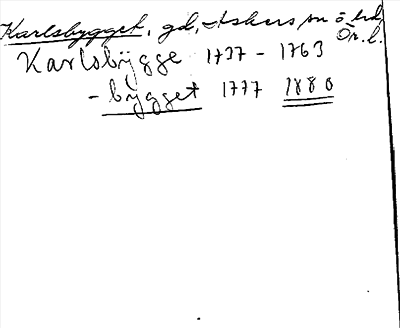 Karlsbygget, gd, Askers sn ö. hd,
Ör. l.
Karlsbÿgge 1737 - 1763
- bÿgget 1777 1880